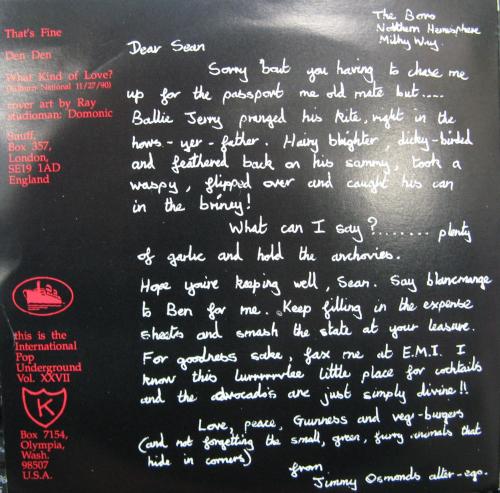 That's Fine
Den Den
What Kind of Love?
(Kilburn National 11/27/90)
cover art by Ray
studioman: Domonic
Snuff,
Box 357,
London,
SE19 1AD
England
this is the
International
Pop
Underground
Vol. XXVII
K
Box 7154,
Olympia,
Wash.
98507
U.S.A.
The Bono
Northern Hemisphere
Milky Way.
Dear Sean
Sorry 'bout you having to chase me
up for the passport me old mate but.....
Ballie Jerry pranged his kite, right in the
hows-yer-father. Hairy blighter dicky-birded
and feathered back on his sammy, took a
waspy, flipped over and caught his can
in the briney!
What can I say?........ plenty
of garlic and hold the anchovies.
Hope you're keeping well, Sean. Say blancmange
to Ben for me. Keep filling in the expense
sheets and smash the state at your leasure.
For goodness sake, fax me at E.M.I. I
know this lurrrrrvlee little place for cocktails
and the advocados are just simply divine!!
Love, peace, Guinness and vegi-burgers
(and not forgetting the small, green, furry animals that
hide in corners)
from
Jimmy Osmonds alter-ego.